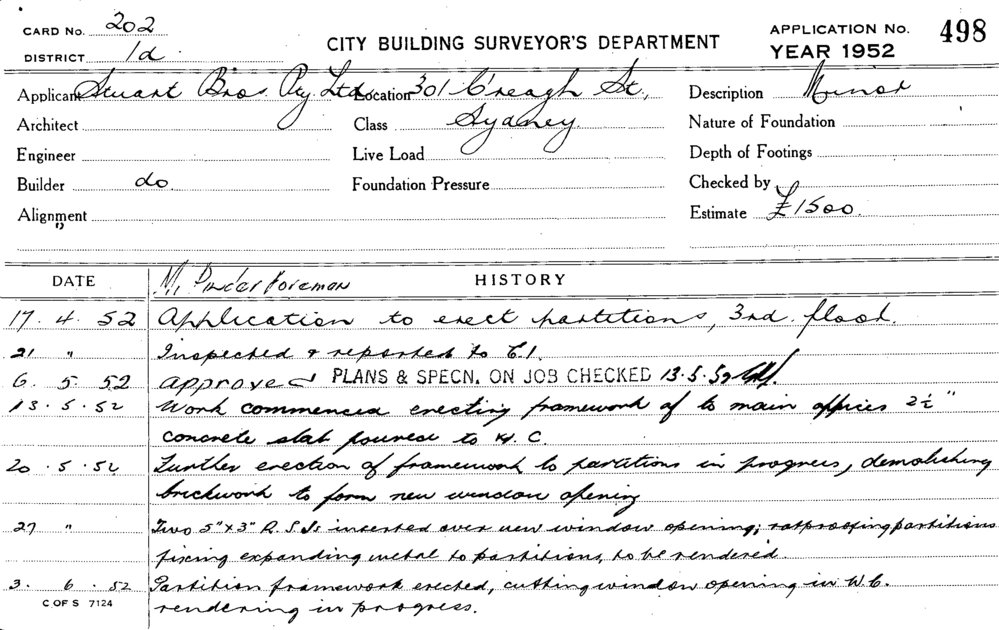 CARD No. 202
DISTRICT 1d
CITY BUILDING SURVEYOR'S DEPARTMENT
APPLICATION No. 498
YEAR 1952
Applicant Stuart Bros. Pty. Ltd. Location 301 C'reagh St., Description Minor
Architect Class Sydney. Nature of Foundation
Engineer Live Load Depth of Footings
Builder do Foundation Pressure Checked by
Alignment Estimate £1500.
DATE M. Pinder Foreman HISTORY
17. 4. 52 Application to erect partitions, 3rd. floor.
21 " Inspected & reported to C.I.
6. 5. 52 Approved PLANS & SPECN. ON JOB CHECKED 13.5.52
13. 5. 52 Work commenced erecting framework of to main offices 2½"
concrete slab poured to W.C.
20. 5. 52 Further erection of framework to partitions in progress, demolishing
brickwork to form new window opening
27 " Two 5" x 3" R.S.Js inserted over new window opening; ratproofing partitions
fixing expanding metal to partitions, to be rendered.
3. 6. 52 Partition framework erected, cutting window opening in W.C.
rendering in progress.
C OF S 7124